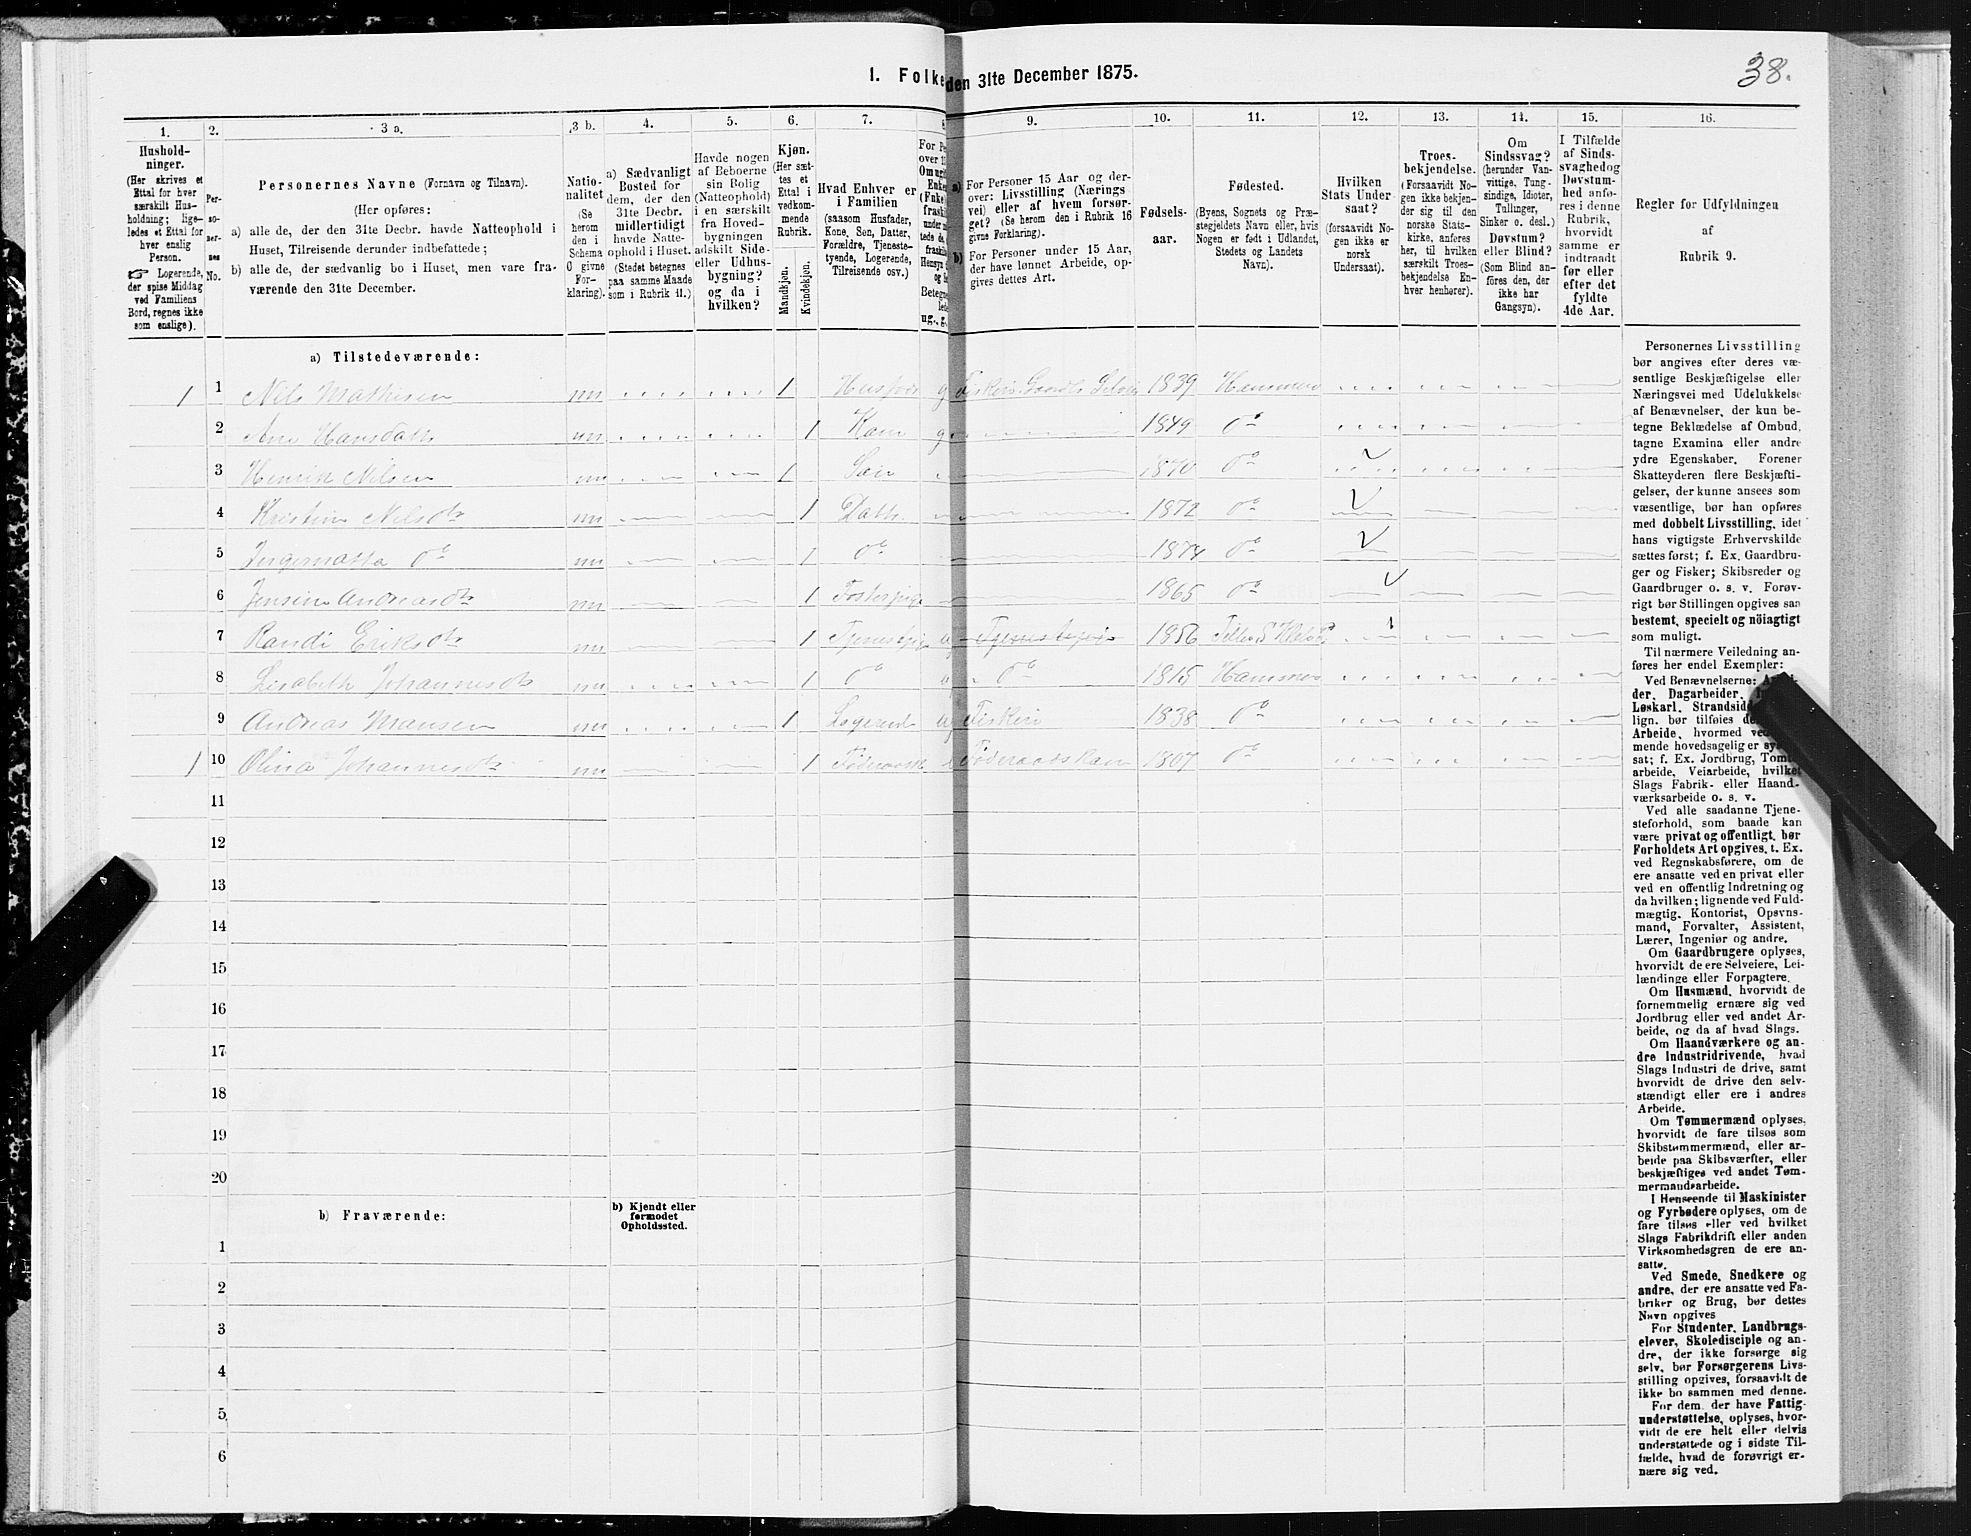 38.
1. Folke den 31te December 1875.
1. 2. 3 a. 3 b. 4. 5. 6. 7. 8 9. 10. 11. 12. 13. 14. 15. 16.
Hushold-
ninger.
(Her skrives et
Ettal for hver
særskilt Hus-
holdning; lige-
ledes et Ettal for
hver enslig
Person.
☞ Logerende,
der spise Middag
ved Familiens
Bord, regnes ikke
som enslige).
Per-
so-
ner-
nes
No.
Personernes Navne (Fornavn og Tilnavn).
(Her opføres:
a) alle de, der den 31te Decbr. havde Natteophold i
Huset, Tilreisende derunder indbefattede;
b) alle de, der sædvanlig bo i Huset, men vare fra-
værende den 31te December.
Natio-
nalitet
(Se
herom
den i
Schema
O givne
For-
klaring).
a) Sædvanligt
Bosted for
dem, der den
31te Decbr.
midlertidigt
havde Natte-
ophold i Huset.
(Stedet betegnes
paa samme Maade
som i Rubrik 11.)
Havde nogen
af Beboerne
sin Bolig
(Natteophold)
i en særskilt
fra Hoved-
bygningen
adskilt Side-
eller Udhus-
bygning?
og da i
hvilken?
Kjøn.
(Her sæt-
tes et
Ettal i
vedkom-
mende
Rubrik.
Mandkjøn.
Kvindekjøn.
Hvad Enhver er
i Familien
(saasom Husfader,
Kone, Søn, Datter,
Forældre, Tjeneste-
tyende, Logerende,
Tilreisende osv.)
For Pe
over 1
Om ugi
Enke
(Enke
fraski
under m
tede de,
fraskiln
Hensyn
og Se
Betegne
lede
ug., g.,
a) For Personer 15 Aar og der-
over: Livsstilling (Nærings
vei) eller af hvem forsør-
get? (Se herom den i Rubrik 16
givne Forklaring).
b) For Personer under 15 Aar,
der have lønnet Arbeide, op-
gives dettes Art.
Fødsels-
aar.
Fødested.
(Byens, Sognets og Præ-
stegjeldets Navn eller, hvis
Nogen er født i Udlandet,
Stedets og Landets
Navn).
Hvilken
Stats Under
saat?
(forsaavidt No-
gen ikke er
norsk
Undersaat).
Troes-
bekjendelse.
(Forsaavidt No-
gen ikke bekjen-
der sig til den
norske Stats-
kirke, anføres
her, til hvilken
særskilt Troes-
bekjendelse En-
hver henhører).
Om
Sindssvag?
(herunder Van-
vittige, Tung-
sindige, Idioter,
Tullinger,
Sinker o. desl.)
Døvstum?
eller Blind?
(Som Blind an-
føres den, der
ikke har
Gangsyn).
I Tilfælde
af Sinds-
svaghedog
Døvstum-
hed anfø-
res i denne
Rubrik,
hvorvidt
samme er
indtraadt
før eller
efter det
fyldte
4de Aar.
Regler for Udfyldningen
af
Rubrik 9.
a) Tilstedeværende:
1 1 Nils Mathisen nn 1 g 1839
2 Ane Hansdatr nn 1 Kone g 1849 do
3 Henrik Nilsen nn 1 Søn 1870 do
4 Kristine Nilsdtr nn 1 Datter 1872 do
5 do nn 1 do 1874 do
6 Jensine Andreasdtr nn 1 Fosterpige 1865 do
7 Randi Eriksdtr nn 1 Tjenestepige ug Tjenestepige 1856
8 Lisabeth Johannesdtr nn 1 do do 1815
9 Andreas nn 1 Logerende ug Fiskeri 1838 do
1 10 Olina Johannesdtr nn 1 Føderaadskone 1807 do
11
12
13
14
15
16
17
18
19
20
b) Fraværende:
b) Kjendt eller
formodet
Opholdssted.
1
2
3
4
5
6
Personernes Livsstilling
bør angives efter deres væ-
sentlige Beskjæftigelse eller
Næringsvei med Udelukkelse
af Benævnelser, der kun be-
tegne Beklædelse af Ombud,
tagne Examina eller andre
ydre Egenskaber. Forener
Skatteyderen flere Beskjæfti-
gelser, der kunne ansees som
væsentlige, bør han opføres
med dobbelt Livsstilling, idet
hans vigtigste Erhvervskilde
sættes først; f. Ex. Gaardbru-
ger og Fisker; Skibsreder og
Gaardbruger o. s. v. Forøv-
rigt bør Stillingen opgives saa
bestemt, specielt og nøiagtigt
som muligt.
Til nærmere Veiledning an-
føres her endel Exempler:
Ved Benævnelserne:
der, Dagarbeider,
Løskarl, Strandsid
lign. bør tilføies de
Arbeide, hvormed ved
mende hovedsagelig er sys
sat; f. Ex. Jordbrug, Tomt
arbeide, Veiarbeide, hvilket
Slags Fabrik- eller Haand-
værksarbeide o. s. v.
Ved alle saadanne Tjene-
steforhold, som baade kan
være privat og offentligt, bør
Forholdets Art opgives, t. Ex.
ved Regnskabsførere, om de
ere ansatte ved en privat eller
ved en offentlig Indretning og
da hvilken; lignende ved Fuld-
mægtig, Kontorist, Opsyns-
mand, Forvalter, Assistent,
Lærer, Ingeniør og andre.
Om Gaardbrugere oplyses,
hvorvidt de ere Selveiere, Lei-
lændinge eller Forpagtere.
Om Husmænd, hvorvidt de
fornemmelig ernære sig ved
Jordbrug eller ved andet Ar-
beide, og da af hvad Slags.
Om Haandværkere og an-
dre Industridrivende, hvad
Slags Industri de drive, samt
hvorvidt de drive den selv-
stændigt eller ere i andres
Arbeide.
Om Tømmermænd oplyses,
hvorvidt de fare tilsøs som
Skibstømmermænd, eller ar-
beide paa Skibsværfter, eller
beskjæftiges ved andet Tøm-
mermandsarbeide.
I Henseende til Maskinister
og Fyrbødere oplyses, om de
fare tilsøs eller ved hvilket
Slags Fabrikdrift eller anden
Virksomhedsgren de ere an-
satte.
Ved Smede, Snedkere og
andre, der ere ansatte ved Fa-
briker og Brug, bør dettes
Navn opgives
For Studenter, Landbrugs-
elever, Skoledisciple og an-
dre, der ikke forsørge sig
selv, bør Forsørgerens Livs-
stilling opgives, forsaavidt de
ikke bo sammen med denne.
For dem, der have Fattig-
understøttelse, oplyses, hvor-
vidt de ere helt eller delvis
understøttede og i sidste Til-
fælde, hvad de forøvrigt er-
nære sig ved.